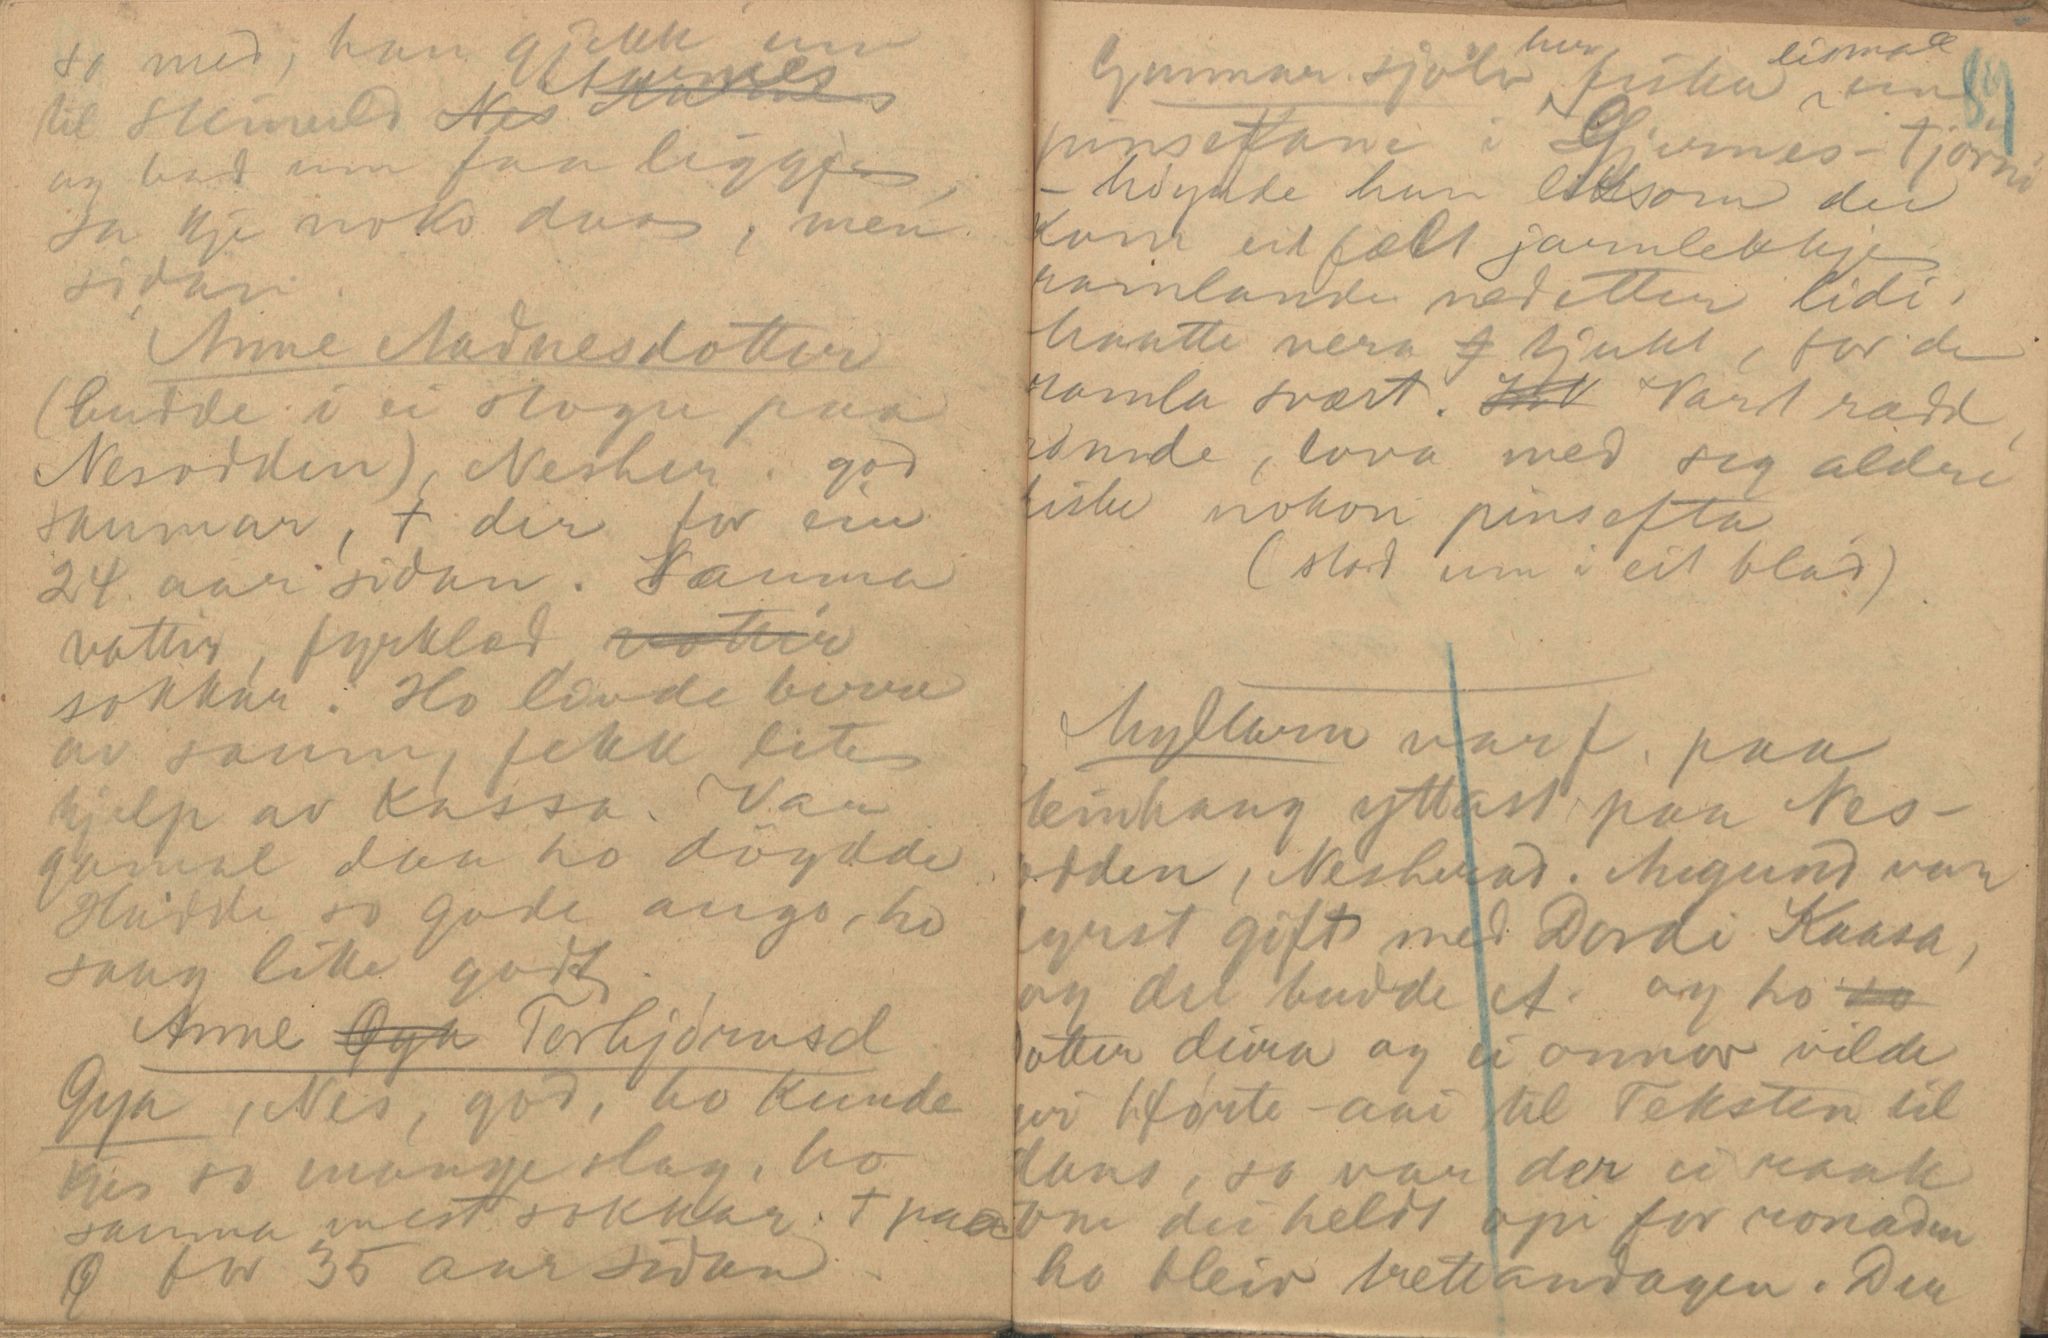 so med, han gjekk um
til Skimuld Nes
og bad um faa liggje,
sa kje noko daas, men
sidan.
Anne Aadnesdotter
(budde i ei stogu paa
Nesodden), Nesher. god
saumar, † der for ein
24 aar sidan. Sauma
vottir, fyrklæd vottir
sokkar. Ho livde berre
av saum, fekk lite
hjelp av Kassa. Var
gamal daa ho döydde
Hadde so gode augo, ho
saag like godt.
Anne Öya Torbjörnsd
Öya, Nes, god, ho kunde
kje so mange slag, ho
sauma mest sokkar. † paa
Ö for 35 aar sidan.
89
Gunnar sjölv, fiska eismal um
pinseftane i Gjernes-tjörni
- höyrde han liksom dei
kom eit fælt jarnlekkje
ramlande nedetter lidi,
maatte vera tjukt, for de
ramla svært. Vart rædd,
römde, lova med seg aldri
fiske nokon pinsefta
(stod um i eit blad)
Myllarn var f. paa
Steinhaug yttast paa Nes-
odden, Nesherad. Augund var
fyrst gift med Dordi Kaasa,
og dei budde A. og ho so
dotter deira og ei onnor vilde
til Teksten til
dans, so var der ei raak
som dei heldt opi for
ho bleiv trettandagen. Den